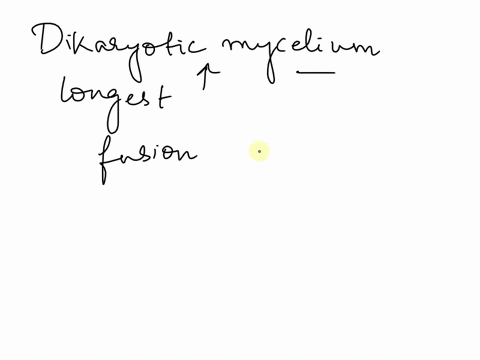 Dikaryotic mycelium
longest ↑
fusion